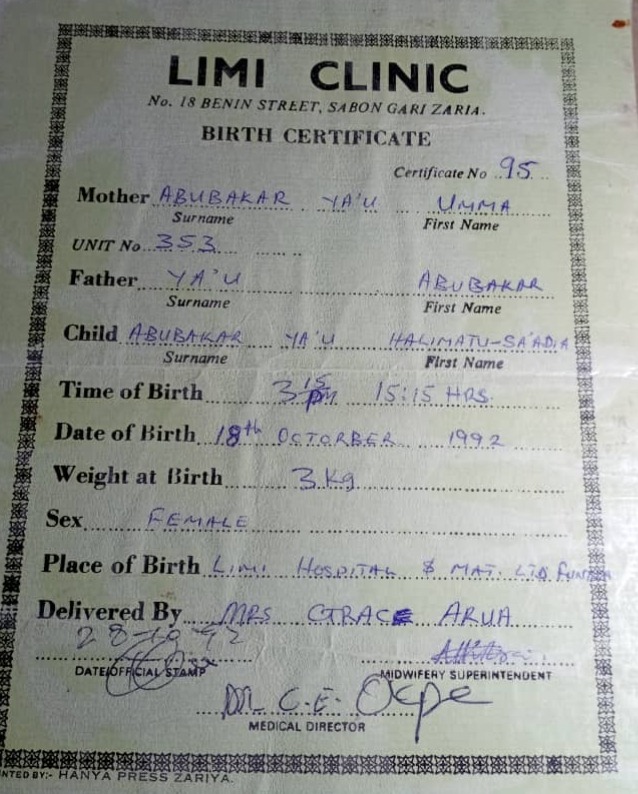 LIMI CLINIC
No. 18 BENIN STREET, SABON GARI ZARIA.
BIRTH CERTIFICATE
Certificate No 95
Mother ABUBAKAR YA'U UMMA
Surname First Name
UNIT No 353
Father YA'U ABUBAKAR
Surname First Name
Child ABUBAKAR YA'U HALIMATU-SA'ADIA
Surname First Name
Time of Birth 3 15 PM 15:15 HRS.
Date of Birth 18th OCTORBER 1992
Weight at Birth 3 Kg
Sex FEMALE
Place of Birth LIMI HOSPITAL & MAT. LTD
Delivered By MRS GRACE ARUA
28-10-92
DATE/OFFICIAL STAMP MIDWIFERY SUPERINTENDENT
DR. C.E.
MEDICAL DIRECTOR
NTED BY:- HANYA PRESS ZARIYA.